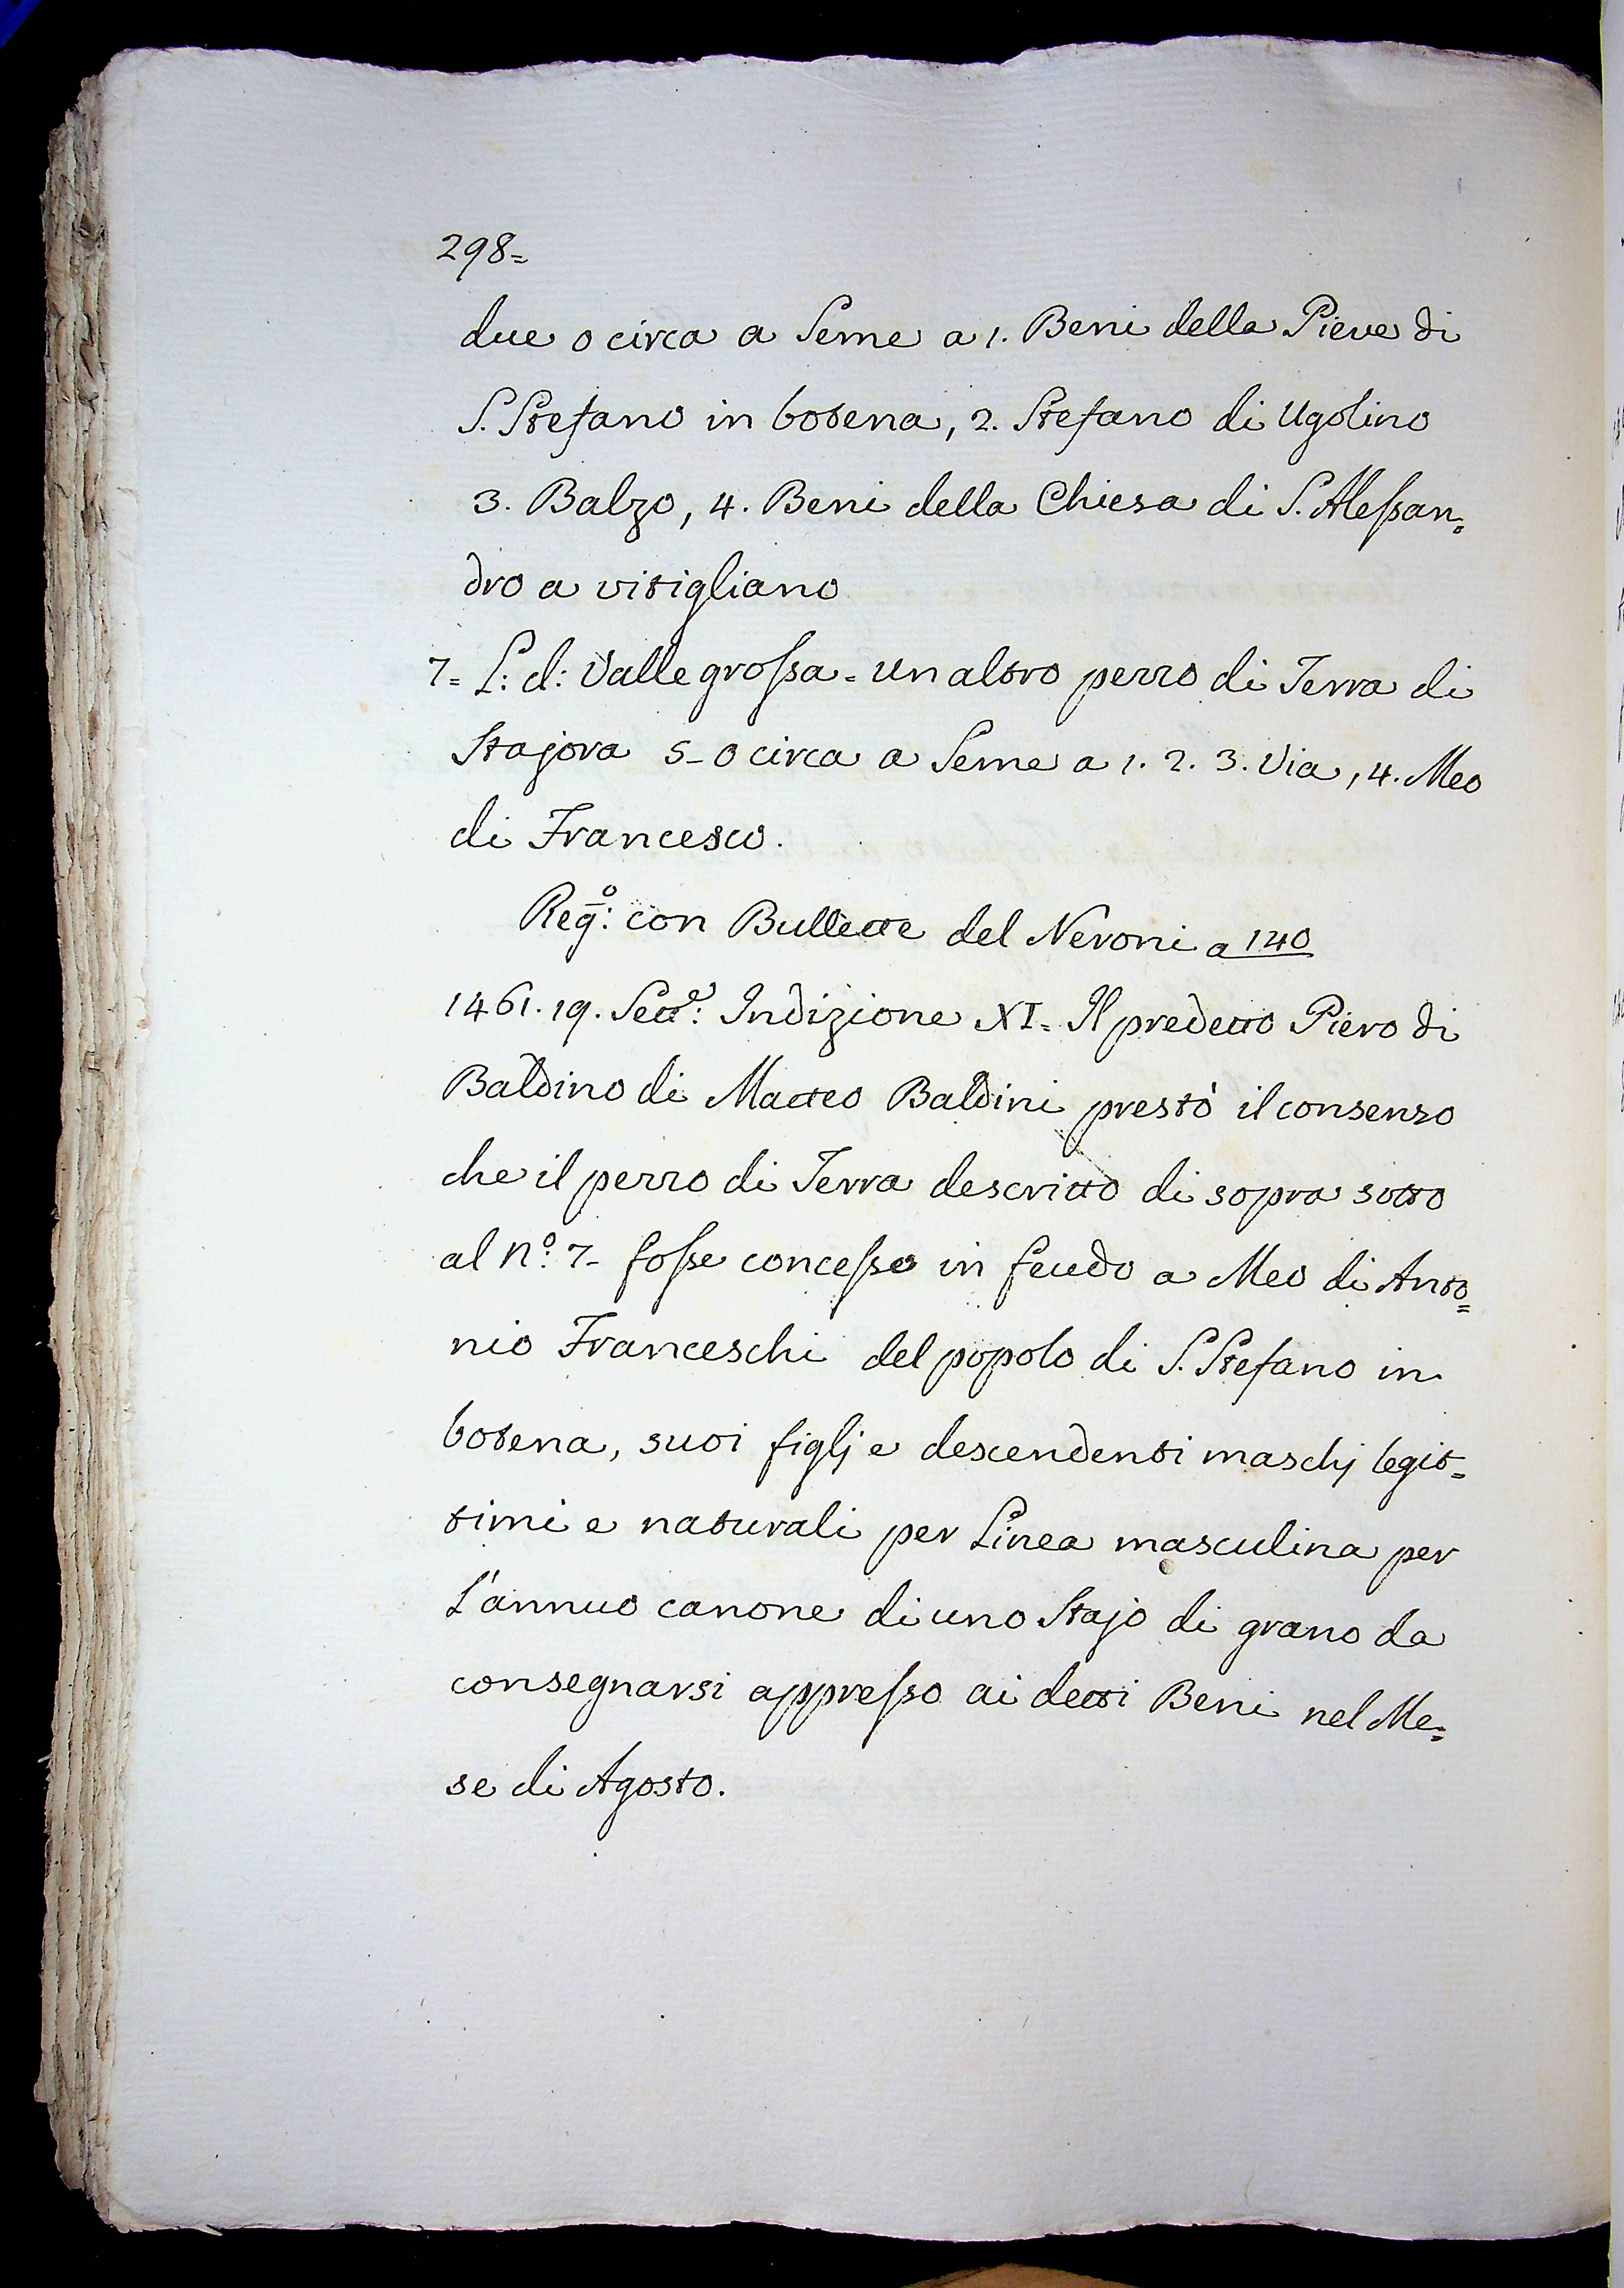 298=
due o circa a Seme a 1. Beni della Pieve di
S. Stefano in botena, 2. Stefano di Ugolino
3. Balzo, 4. Beni della Chiesa di S. Alessan=
dro a vitigliano
7= L: d: Valle grossa = un altro pezzo di Terra di
Stajora 5- o circa a Seme a 1. 2. 3. Via, 4. Meo
di Francesco.
Reg:º con Bullette del Neroni a 140
1461. 19. Sett:e Indizione XI= Il predetto Piero di
Baldino di Matteo Baldini prestò il consenso
che il pezzo di Terra descritto di sopra sotto
al Nº: 7- fosse concesso in feudo a Meo di Anto=
nio Franceschi del popolo di S. Stefano in
botena, suoi figlj e descendenti maschj legit=
timi e naturali per Linea masculina per
L'annuo canone di uno Stajo di grano da
consegnarsi appresso ai detti Beni nel Me=
se di Agosto.